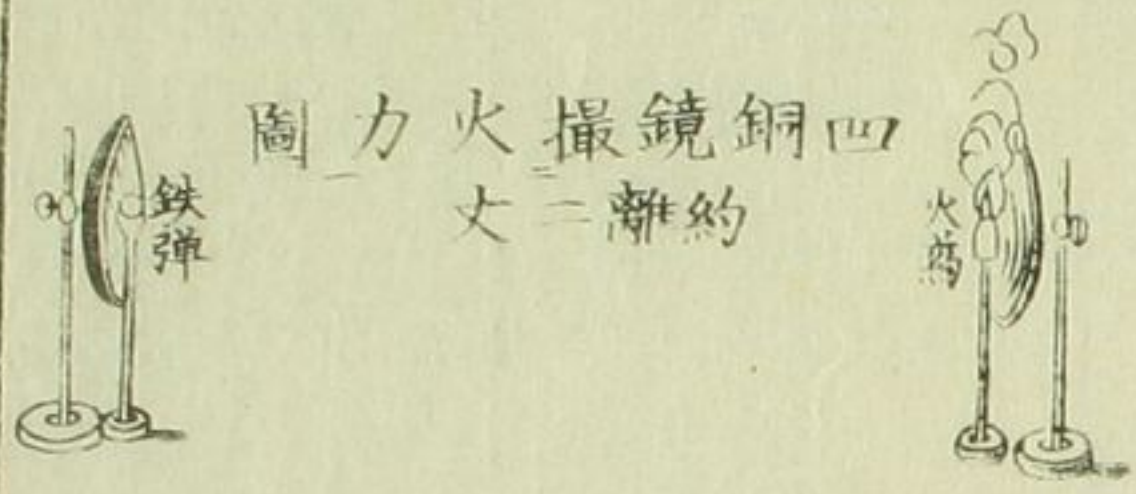 凹銅鏡撮㆓火力㆒圖
約離二丈
火葯
鉄弾